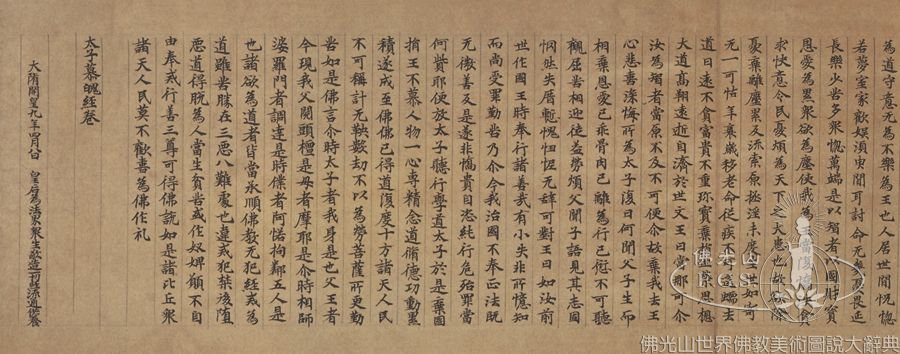 為道守意无為不樂為王也人居世間恍惚
若夢室家歡娛湏臾間可討命无
長樂少苦多衆惚萬端是以殆者不圖財寶
恩愛為累衆欲為塵使我為
求快意令民憂煩為天下之大患也故
憂棄離塵累及流素原
无一可怙年衰歲移老命從疾不
道日遠不貪富貴不重珎寳棄捐恩想
大道高翔遠逝自濟扵世父王曰當那可尒
汝為殆者當原不及不可便尒故棄我去王
心悲喜深悔所為太子復曰何聞父子生而
相棄恩愛已乖骨肉已離為行已愆不可聽
觀屈苦相迎徒益勞煩父聞子語見其志固
惘然失厝慙愧忸怩无辭可對王曰如汝前
世作國王時奉行諸善或有小失非所憶知
而尚受罪勤苦乃尒今我治國不奉正法既
无微善及是遂非憍貴自恣純行危殆罪當
何貲耶便放太子聽行學道太子扵是棄國
捐王不慕人物一心專精念道脩德功勳累
積遂成至佛佛已得道復度十方諸天人民
不可稱計无軼數劫不以為勞菩薩所更勤
苦如是佛言尒時太子者我身是也父王者
今現我父閱頭檀是母者摩耶是尒時相師
婆羅門者調達是時僕者阿惒拘鄰五人是
也諸欲為道者皆當承順佛教无犯經戒為
道雖苦勝在三惡八難處也違戒犯禁後墮
惡道得脫為人當生貧苦或作奴婢願不自
由奉戒行善三尊可得佛說如是諸比丘衆
諸天人民莫不歡喜為佛作礼
太子慕魄經卷
大隋開皇九年四月八日 皇后為法界衆生敬造一切經流通供養
佛光山
FGS
佛光山世界佛教美術圖說大辭典